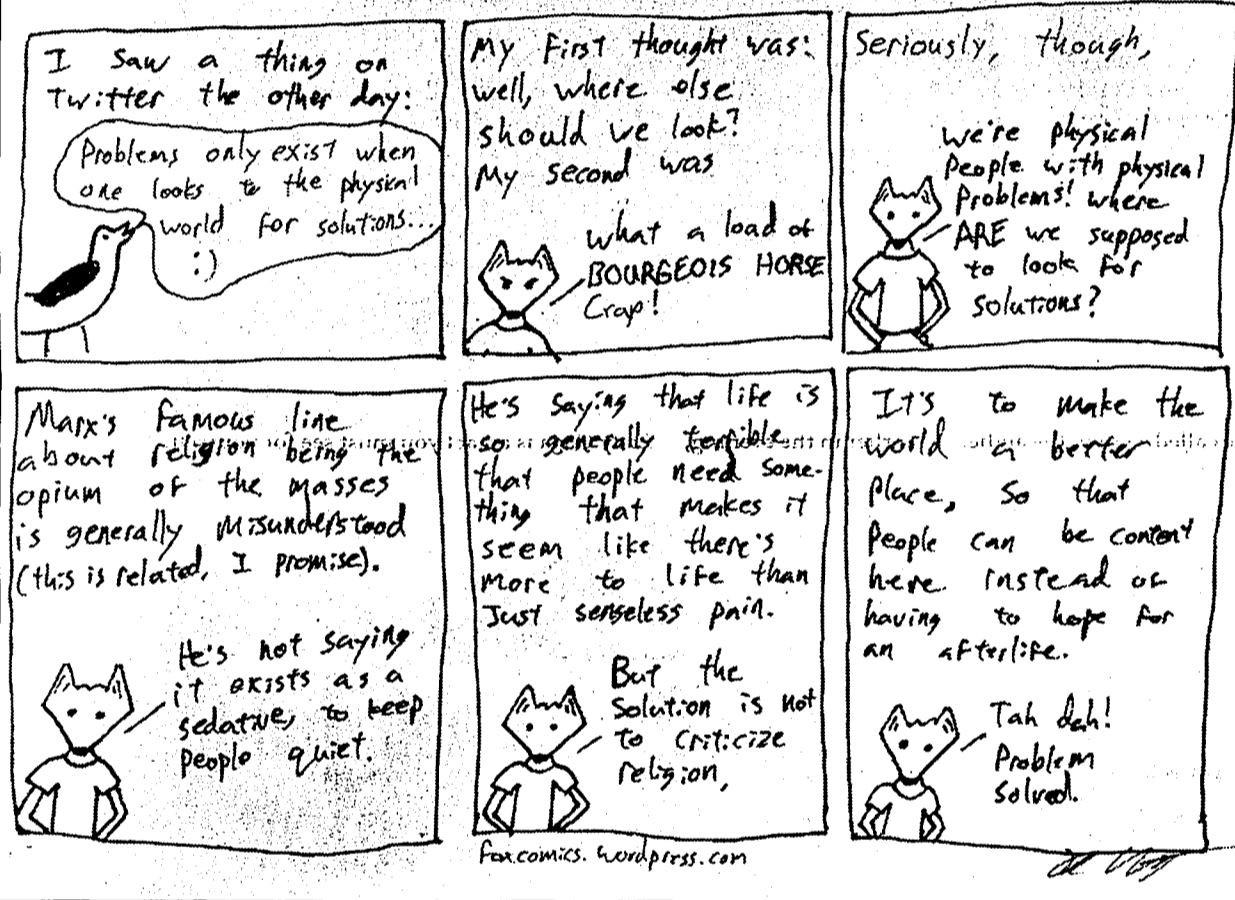 I saw a thing on
Twitter the other day:
Problems only exist when
one looks to the physical
world for solutions...
:)
My first thought was:
well, where else
should we look?
My second was
what a load of
BOURGEOIS HORSE
Crap!
Seriously, though,
we're physical
people with physical
problems! where
ARE we supposed
to look for
solutions?
Marx's famous line
about religion being the
opium of the masses
is generally misunderstood
(this is related, I promise).
He's not saying
it exists as a
sedative, to keep
people quiet.
He's saying that life is
so generally terrible
that people need some-
thing that makes it
seem like there's
more to life than
Just senseless pain.
But the
solution is not
to criticize
religion,
It's to make the
world a better
place, so that
people can be content
here instead of
having to hope for
an afterlife.
Tah dah!
Problem
solved.
foxcomics.wordpress.com